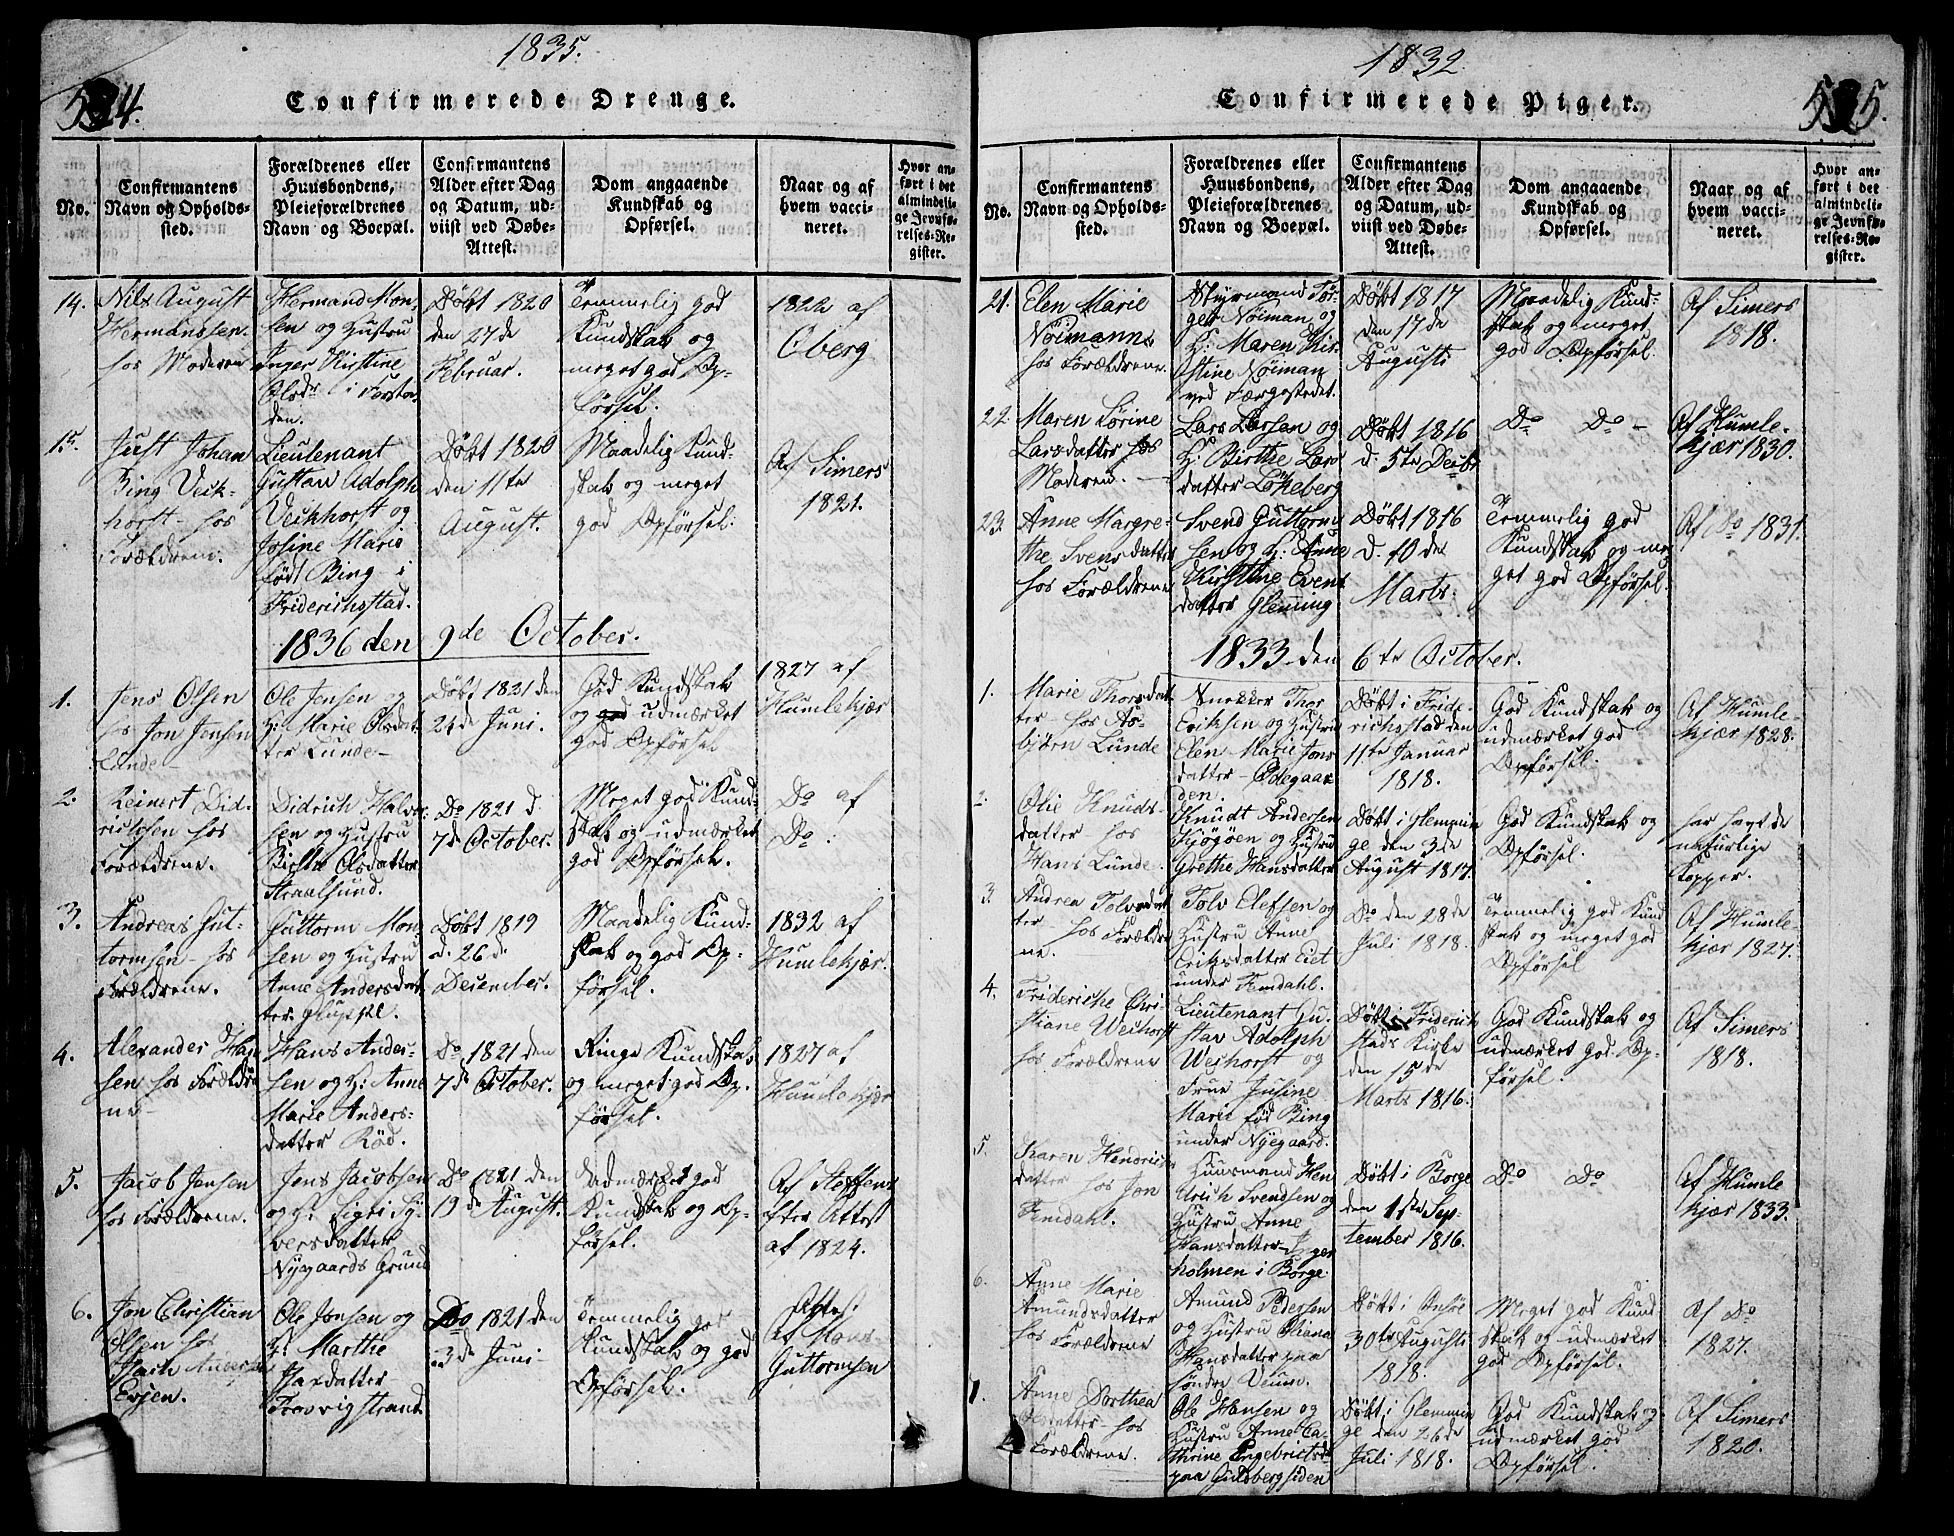 1835.
534.
Confirmerede Drenge.
No.
Confirmantens
Navn og Opholds-
sted.
Forældrenes eller
Huusbondens,
Pleieforældrenes
Navn og Boepæl.
Confirmantens
Alder efter Dag
og Datum, ud-
viist ved Døbe-
Attest.
Dom angaaende
Kundskab og
Opførsel.
Naar og af
hvem vacci-
neret.
Hvor an-
ført i det
almindeli-
ge Jevnfø-
relses-Re-
gister.
14.
Nils August
Hermansen
hos Moderen
Hermand Mon-
sen og Hustru
Inger Kirstine
Olsdr i Forsta-
den.
Døbt 1820
den 27de
Februar.
Temmelig god
Kundskab og
meget god Op-
førsel.
1822 af
Oberg
15.
Just Johan
Bing Veick-
horst hos
Forældrene.
Lieutenant
Gustav Adolph
Veickhorst og
Josine Marie
født Bing i
Friderichsstad.
Døbt 1820
den 11te
August.
Maadelig Kund-
skab og meget
god Opførsel.
Af Simers
1821.
1836 den 9de October.
1.
Jens Olsen
hos Jon Jensen
Lunde
Ole Jensen og
H: Marie Olsdat-
ter Lunde
Døbt 1821 den
24de Juni.
God Kundskab
og god udmærket
god Opførsel
1827 af
Humlekjær
2.
Reinert Did-
richsen hos
Forældrene.
Didrich Halvor-
sen og Hustru
Birthe Olsdatter
Straalsund.
Do 1821 d
7de October.
Meget god Kund-
skab og udmærket
god Opførsel.
Do af
Do:
3.
Andreas Gut-
tormsen hos
Forældrene.
Guttorm Mon-
sen og Hustru
Anne Andersdat-
ter
Døbt 1819
d. 26de
December.
Maadelig Kund-
skab og god Op-
førsel.
1832 af
Humlekjær.
4.
Alexander Han-
sen hos Forældre-
ne
Hans Ander-
sen og H: Anne
Marie Anders-
datter Röd.
Do 1821 den
7de October.
Ringe Kundskab
og meget god Op-
førsel.
1827 af
Humlekjær
5.
Jacob Jensen
hos Forældrene.
Jens Jacobsen
og H: Sigri Sy-
versdatter
Nygaards Grund
Do 1821 den
19de August.
Udmærket god
Kundskab og Op-
førsel.
Af Steffens
efter Attest
af 1824.
6.
Jon Christian
Olsen hos
Andersen
Evjen.
Ole Jonsen og
H: Marthe
datter
Trosvigstrand
Do 1821 den
3de Juni
Temmelig god
Kundskab og god
Opførsel.
Attest
Af Mons
Guttormsen
1832
535.
Confirmerede Piger.
No.
Confirmantens
Navn og Opholds-
sted.
Forældrenes eller
Huusbondens,
Pleieforældrenes
Navn og Boepæl.
Confirmantens
Alder efter Dag
og Datum, ud-
viist ved Døbe-
Attest.
Dom angaaende
Kundskab og
Opførsel.
Naar og af
hvem vacci-
neret.
Hvor an-
ført i det
almindeli-
ge Jevnfø-
relses-Re-
gister.
21.
Elen Marie
Nöimann
hos Forældrene.
Styrmand Jör-
gen Nöiman og
H: Maren Kir-
stine Nöiman
ved Færgestedet.
Døbt 1817
den 17de
Augusti
Maadelig Kund-
skab og meget
god Opførsel.
Af Simers
1818.
22.
Maren Sörine
Larsdatter hos
Moderen.
Lars Larsen og
H: Birthe Lars-
datter Löpeberg
Døbt 1816
d. 5te Decbr
Do Do
Af Humle-
kjær 1830.
23.
Anne Margre-
the Svensdatter
hos Forældrene
Svend Guttorm-
sen og H: Anne
Kirstine Evens-
datter Glemming
Døbt 1816
d. 10de
Marts.
Temmelig god
Kundskab og me-
get god Opførsel.
Af Do 1831.
1833 den 6te October.
1.
Marie Thorsdat-
ter hos As-
björn Lunde
Snekker Thor
Eriksen og Hustru
Elen Marie Jons-
datter Ödegaar-
den.
Døbt i Fride-
richsstad den
11te Januar
1818.
God Kundskab og
udmærket god
Opførsel.
Af Humle-
kjær 1828.
2.
Olie Knuds-
datter hos
Hans Lunde.
Knudt Andersen
Kjögöen og Hustru
Grethe Hansdatter
Døbt i Glemmin-
ge den 3de
August 1817.
God Kundskab og
Opførsel.
har havt de
naturlige
Kopper.
3.
Andrea Tolvsdat-
ter hos Forældre-
ne.
Tolv Elefsen og
Hustru Anne
Eriksdatter Eiet
under Femdahl.
Do den 28de
Juli 1818.
Temmelig god Kund-
skab og meget god
Opførsel
Af Humle-
kjær 1827.
4.
Frideriche Chri-
stiane Weihorst
hos Forældrene
Lieutenant Gu-
stav Adolph
Weihorst og
Frue Jusine
Marie fød Bing
under Nyegaard.
Døbt i Friderich-
stads Kirke
den 15de
Marts 1816.
God Kundskab og
udmærket god Op-
førsel.
Af Simers
1818.
5.
Karen Hendrichs-
datter hos Jon
Femdahl.
Huusmand Hen-
drich Svendsen og
Hustru Anne
Hansdatter
holmen i Borge
Døbt i Borge
den 1ste Sep-
tember 1816.
Do Do
Af Humle-
kjær 1833.
6.
Anne Marie
Amundsdatter
hos Forældrene
Amund Pedersen
og Hustru Oliana
Hansdatter paa
søndre Veum.
Døbt i Onsöe
30te Augusti
1818.
Meget god Kund-
skab og udmærket
god Opførsel.
Af Do
1827.
Anne Dorthea
Olsdatter hos
Forældrene.
Ole Hansen og
Hustru Anne Ca-
thrine Engebrictsdr
paa Guldbergsiden
Døbt i Glemmin-
ge den 26de
Juli 1818.
God Kundskab og
udmærket god
Opførsel.
Af Simers
1820.